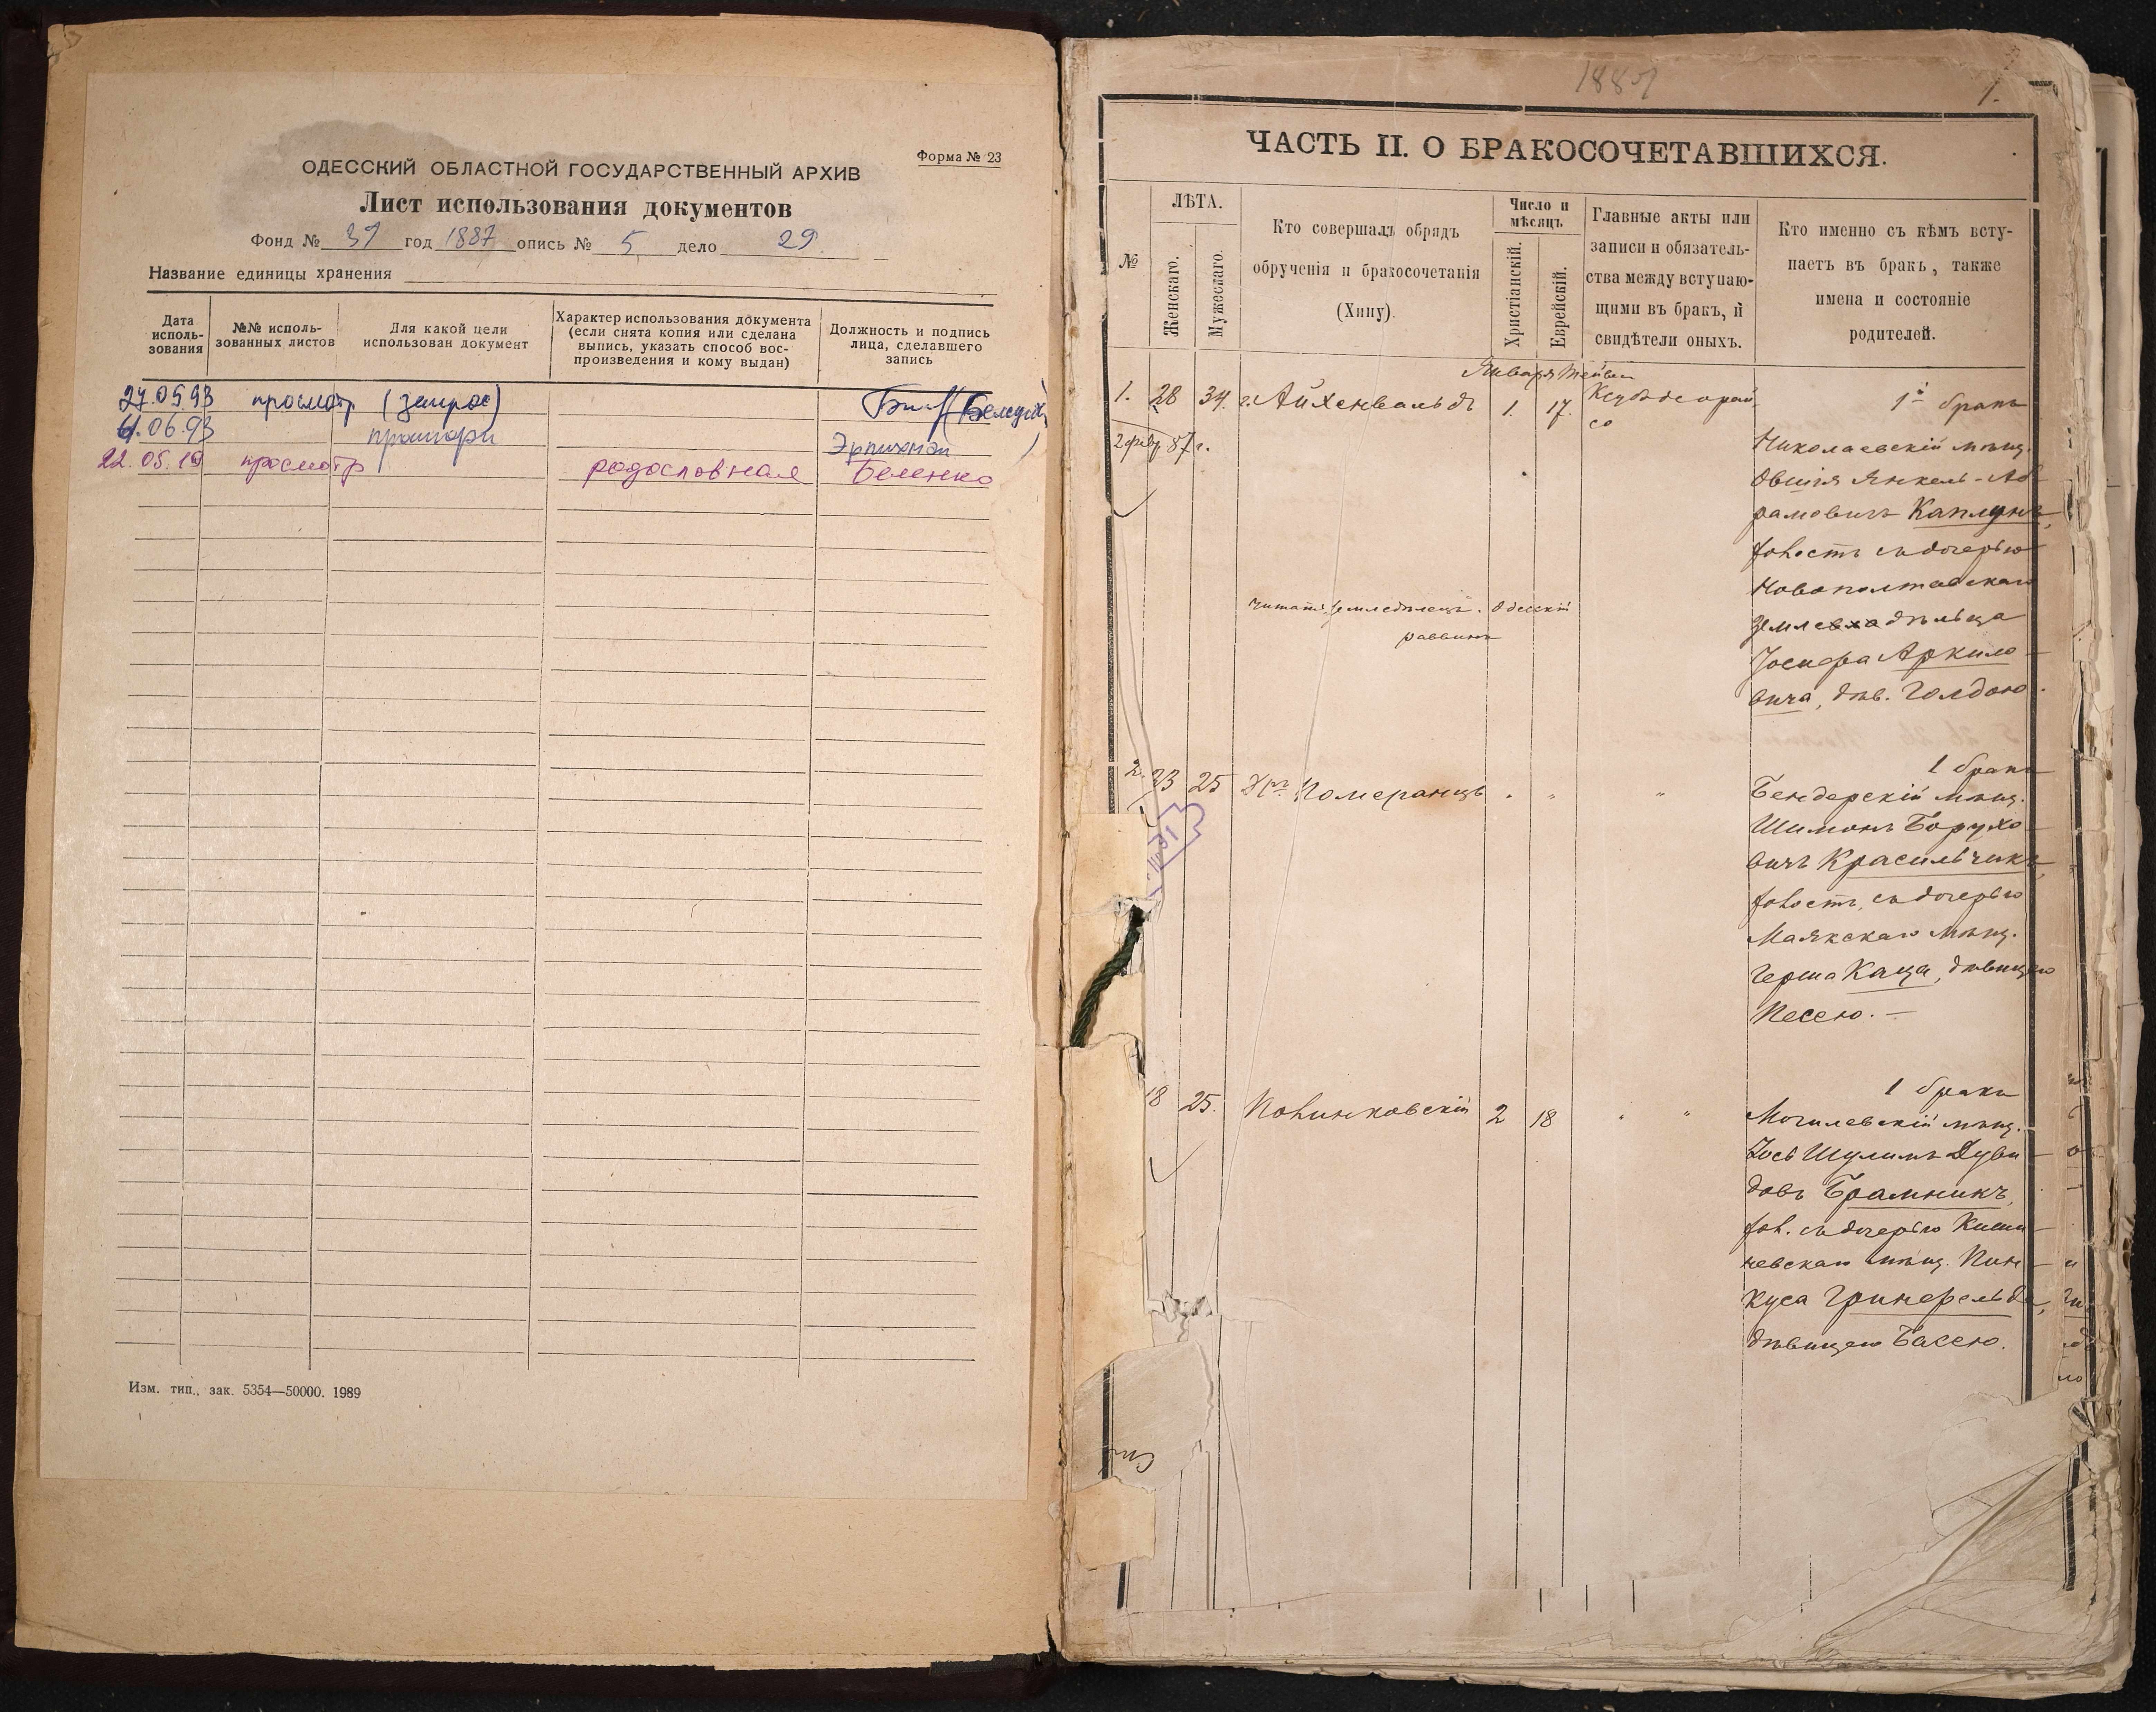 Форма № 23
ОДЕССКИЙ ОБЛАСТНОЙ ГОСУДАРСТВЕННЫЙ АРХИВ
Лист использования документов
Фонд № 39 год 1887 опись № 5 дело 29.
Название единицы хранения
Дата исполь-зования
№№ исполь-зованных листов
Для какой цели использован документ
Характер использования документа (если снята копия или сделана выпись, указать способ вос-произведения и кому выдан)
Должность и подпись лица, сделавшего запись
27.05.93 просмотр (запрос)
.06.93
22.05.19 просмотр родословная Беленко
Изм. тип., зак. 5354—50000. 1989
1887
1.
ЧАСТЬ II. О БРАКОСОЧЕТАВШИХСЯ.
№
ЛѢТА.
Женскаго.
Мужескаго.
Кто совершалъ обрядъ
обрученія и бракосочетанія
(Хипу).
Число и
мѣсяцъ
Христіанскій.
Еврейскій.
Главные акты или
записи и обязатель-
ства между вступаю-
щими въ бракъ, и
свидѣтели оныхъ.
Кто именно съ кѣмъ всту-
паетъ въ бракъ, также
имена и состояніе
родителей.
Января Тейвеи
1. 28 34. г. Айхенвальдъ 1. 17.
1й бракъ
2 февр 87 г.
Николаевскій мѣщ.
Овшія Янкель-Аб
рамовичъ Каплунъ,
холость съ дочерью
Новополтавскаго
дѣльца
Іосифа Аркило
вича, дѣв. Голдою.
Одесскій
раввинъ
2. 23 25 Хръ Померанцъ " " "
1 бракъ
Бендерскій мѣщ.
Шимонъ Борухо
вичъ Красильчикъ,
холостъ, съ дочерью
Маякскаго мѣщ.
Герша Каца, дѣвицею
Песею. —
18 25. Полинковскій 2 18 " "
1 бракъ
Могилевскій мѣщ.
Іось Шулимъ Дуви
довъ Брамникъ,
хол. съ дочерью Киши
невскаго мѣщ. Пин
куса Гринфельда,
дѣвицею Басею.